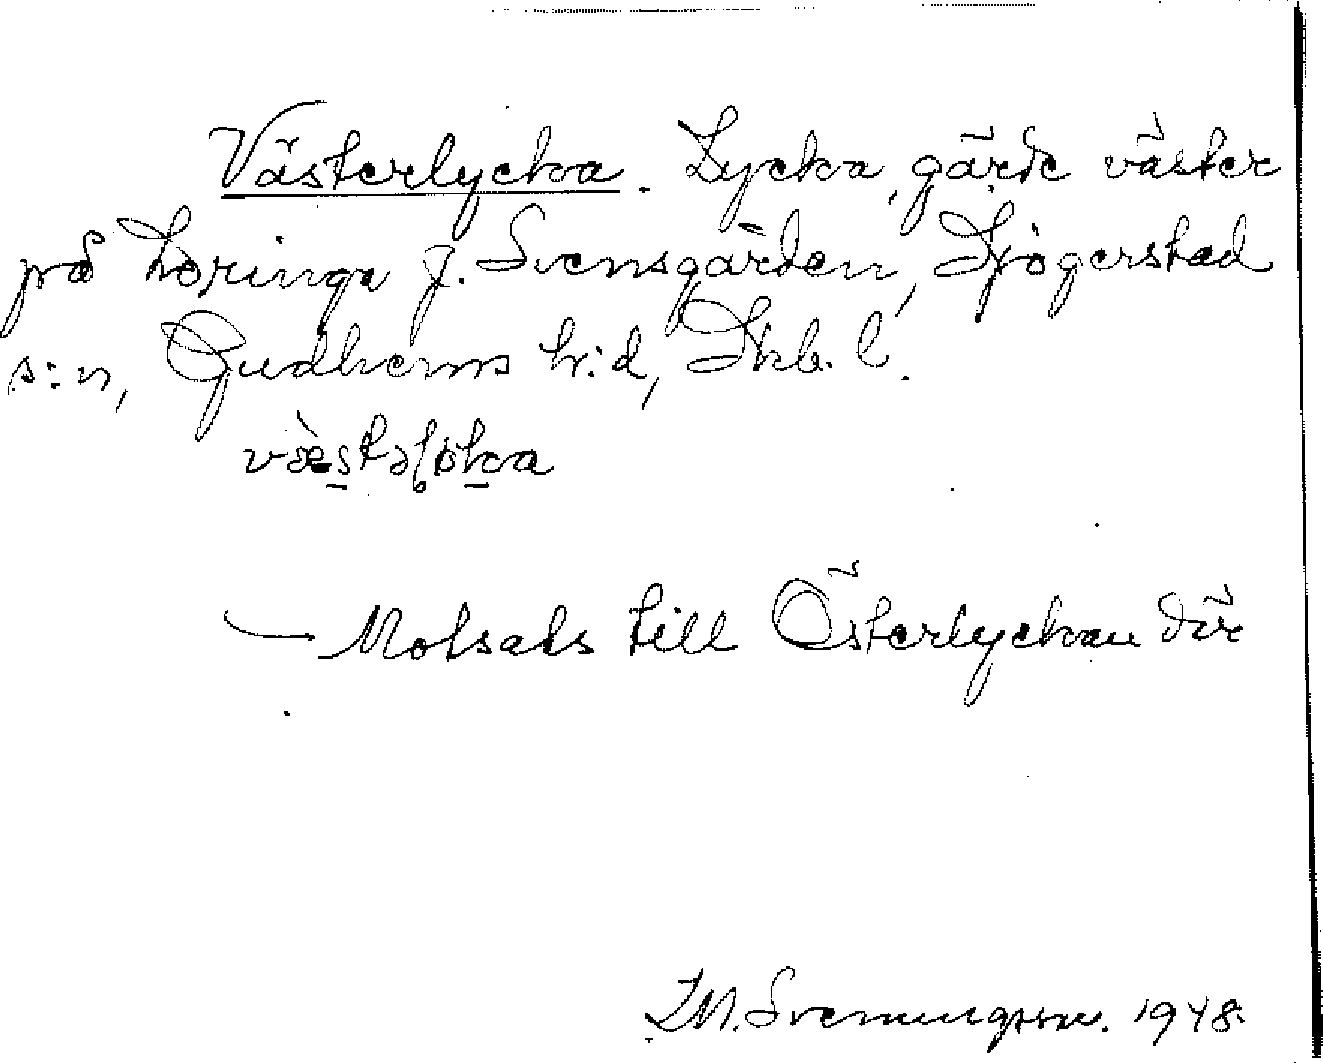 Västerlycka. Lycka, gärde väster
på Loringa g. Svensgården, Sjögerstad
s:n, Gudhems h:d, Skb. l.
væstəḷøka
— Motsats till Österlyckan där
I.M. Svenningsson. 1948.